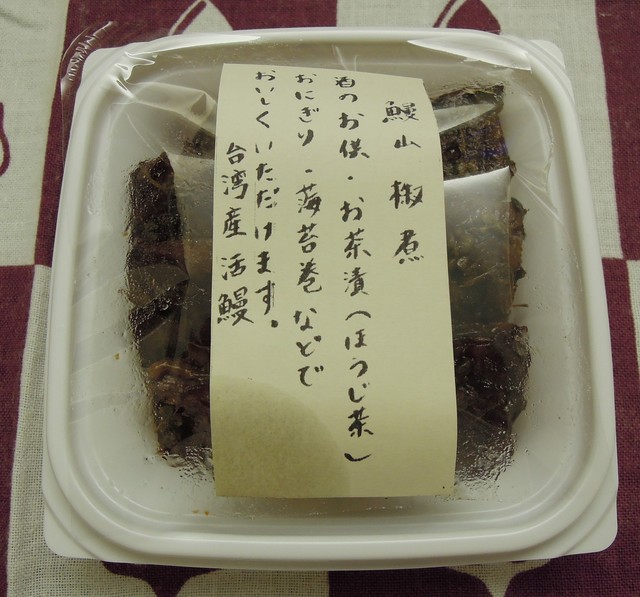 鰻山椒煮
酒のお供・お茶漬(ほうじ茶)
おにぎり・海苔巻などで
おいしくいただけます。
台湾産活鰻